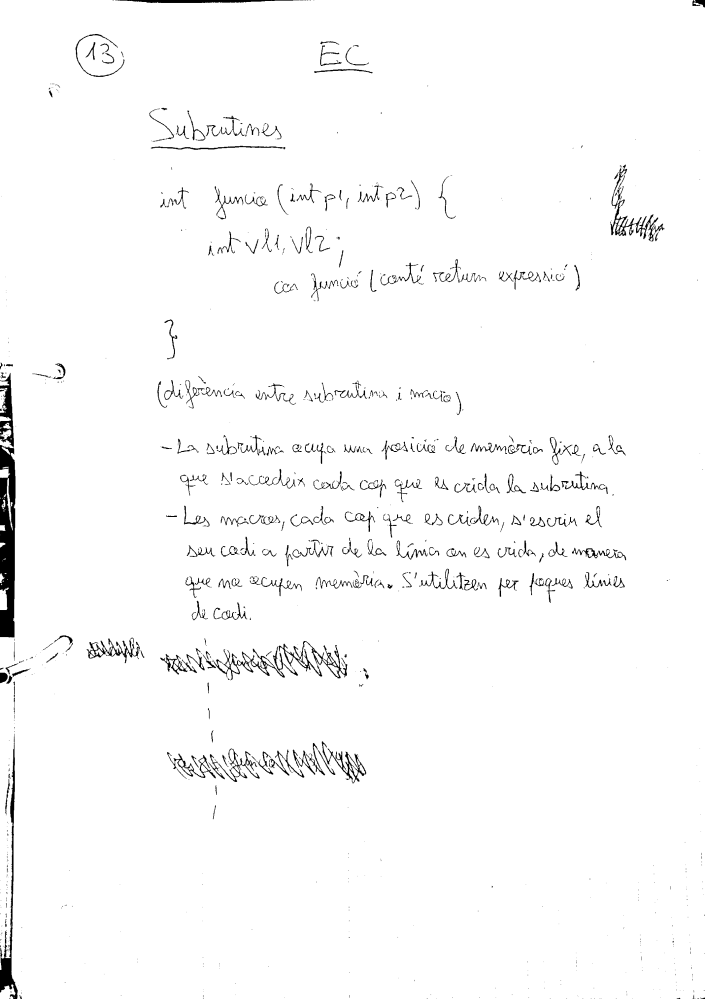 13
EC
Subrutines
int funcio (int p1, int p2) {
int vl1, vl2;
cos funció (conté return expressió)
}
(diferència entre subrutina i macro)
- La subrutina ocupa una posició de memòria fixe, a la
que s'accedeix cada cop que es crida la subrutina.
- Les macros, cada cop que es criden, s'escriu el
seu codi a partir de la línia on es crida, de manera
que no ocupen memòria. S'utilitzen per poques línies
de codi.